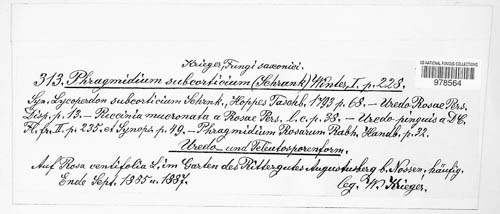 Krieger, Fungi saxonici.
US NATIONAL FUNGUS COLLECTIONS
978564
313. Phragmidium subcorticium (Schrank) Winter, I. p. 228.
Syn. Lycoperdon subcorticium Schrnk., Hoppes Taschb. 1793 p. 68. — Uredo Rosae Pers.
Disp. p. 13. — Puccinia mucronata a Rosae Pers. l. c. p. 38. — Uredo pinguis a DC.
Fl. fr. II. p. 235. et Synops. p. 49. — Phragmidium Rosarum Rabh. Handb. p. 32.
Uredo- und Teleutosporenform.
Auf Rosa centifolia L. im Garten des Rittergutes Augustusberg b. Nossen, häufig.
Ende Sept. 1885 u. 1887.
leg. W. Krieger.